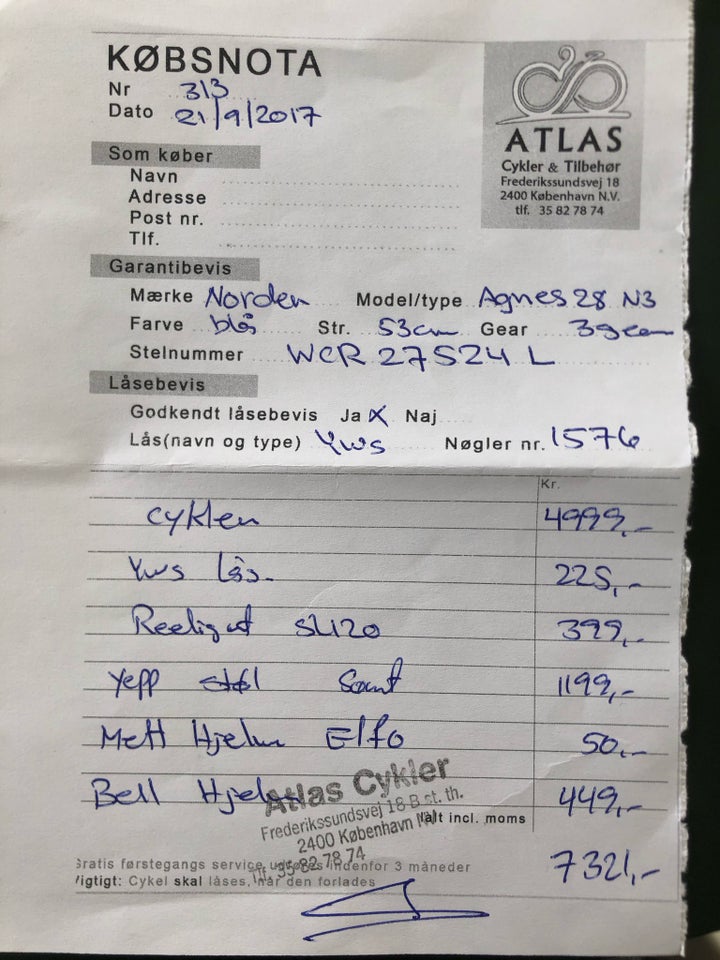 KØBSNOTA
Nr 313
Dato 21/9/2017
ATLAS
Cykler & Tilbehør
Frederikssundsvej 18
2400 København N.V.
tlf. 35 82 78 74
Som køber
Navn
Adresse
Post nr.
Tlf.
Garantibevis
Mærke Norden Model/type Agnes 28 N3
Farve blå Str. 53cm Gear 3gear
Stelnummer WCR 27524 L
Låsebevis
Godkendt låsebevis Ja X Naj
Lås(navn og type) Yws Nøgler nr. 1576
Kr.
cyklen 4999,-
Yws lås 225,-
SL120 399,-
Yepp 1199,-
Mett Hjelm Elfo 50,-
Bell Hjelm 449,-
Atlas Cykler
Frederikssundsvej 18 B st. th.
2400 København NV
Tlf. 35 82 78 74
Ialt incl. moms
7321,-
Gratis førstegangs service udføres indenfor 3 måneder
Vigtigt: Cykel skal låses, når den forlades